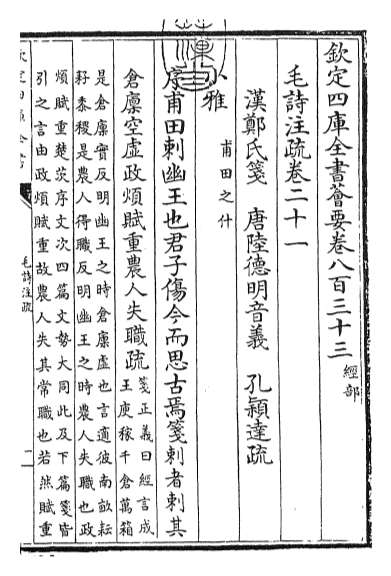 欽定四庫全書薈要卷八百三十三 經部
毛詩注疏卷二十一
漢鄭氏箋 唐陸德明音義 孔穎達疏
小雅
甫田之什
序甫田刺幽王也君子傷今而思古焉箋刺者刺其
倉廩空虛政煩賦重農人失職疏
箋正義曰經言成
王庾稼千倉萬箱
是倉廩實反明幽王之時倉廩虛也言適彼南畝耘
耔黍稷是農人得職反明幽王之時農人失職也政
煩賦重楚茨序文次四篇文勢大同此及下篇箋皆
引之言由政煩賦重故農人失其常職也若然賦重
毛詩注疏
一